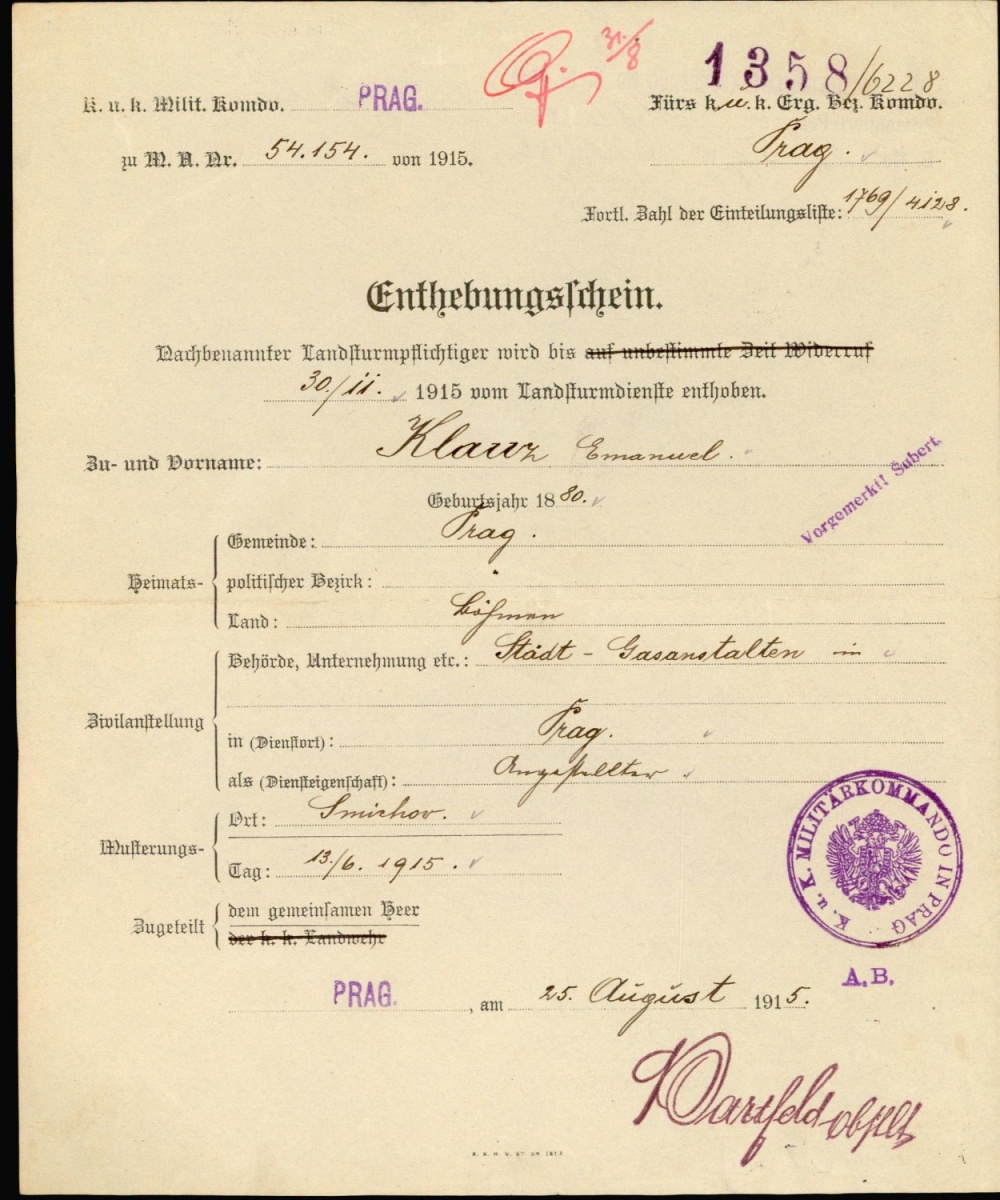 31/8
1358/6228
K. u. k. Milit. Komdo. PRAG.
Fürs k. u. k. Erg. Bez. Komdo.
zu M. A. Nr. 54.154. von 1915.
Prag.
Fortl. Zahl der Einteilungsliste: 1769/4128.
Enthebungsschein.
Nachbenannter Landsturmpflichtiger wird bis auf unbestimmte Zeit Widerruf
30./11. 1915 vom Landsturmdienste enthoben.
Zu- und Vorname: Klauz Emanuel.
Vorgemerkt! Šubert.
Geburtsjahr 1880.
Heimats-
Gemeinde: Prag.
politischer Bezirk:
Land: Böhmen
Zivilanstellung
Behörde, Unternehmung etc.: Städt - Gasanstalten in
in (Dienstort): Prag.
als (Diensteigenschaft): Angestellter
Musterungs-
Ort: Smichov.
Tag: 13./6. 1915.
K. u. K. MILITÄRKOMMANDO IN PRAG
Zugeteilt
dem gemeinsamen Heer
der k. k. Landwehr
A.B.
PRAG. , am 25. August 1915.